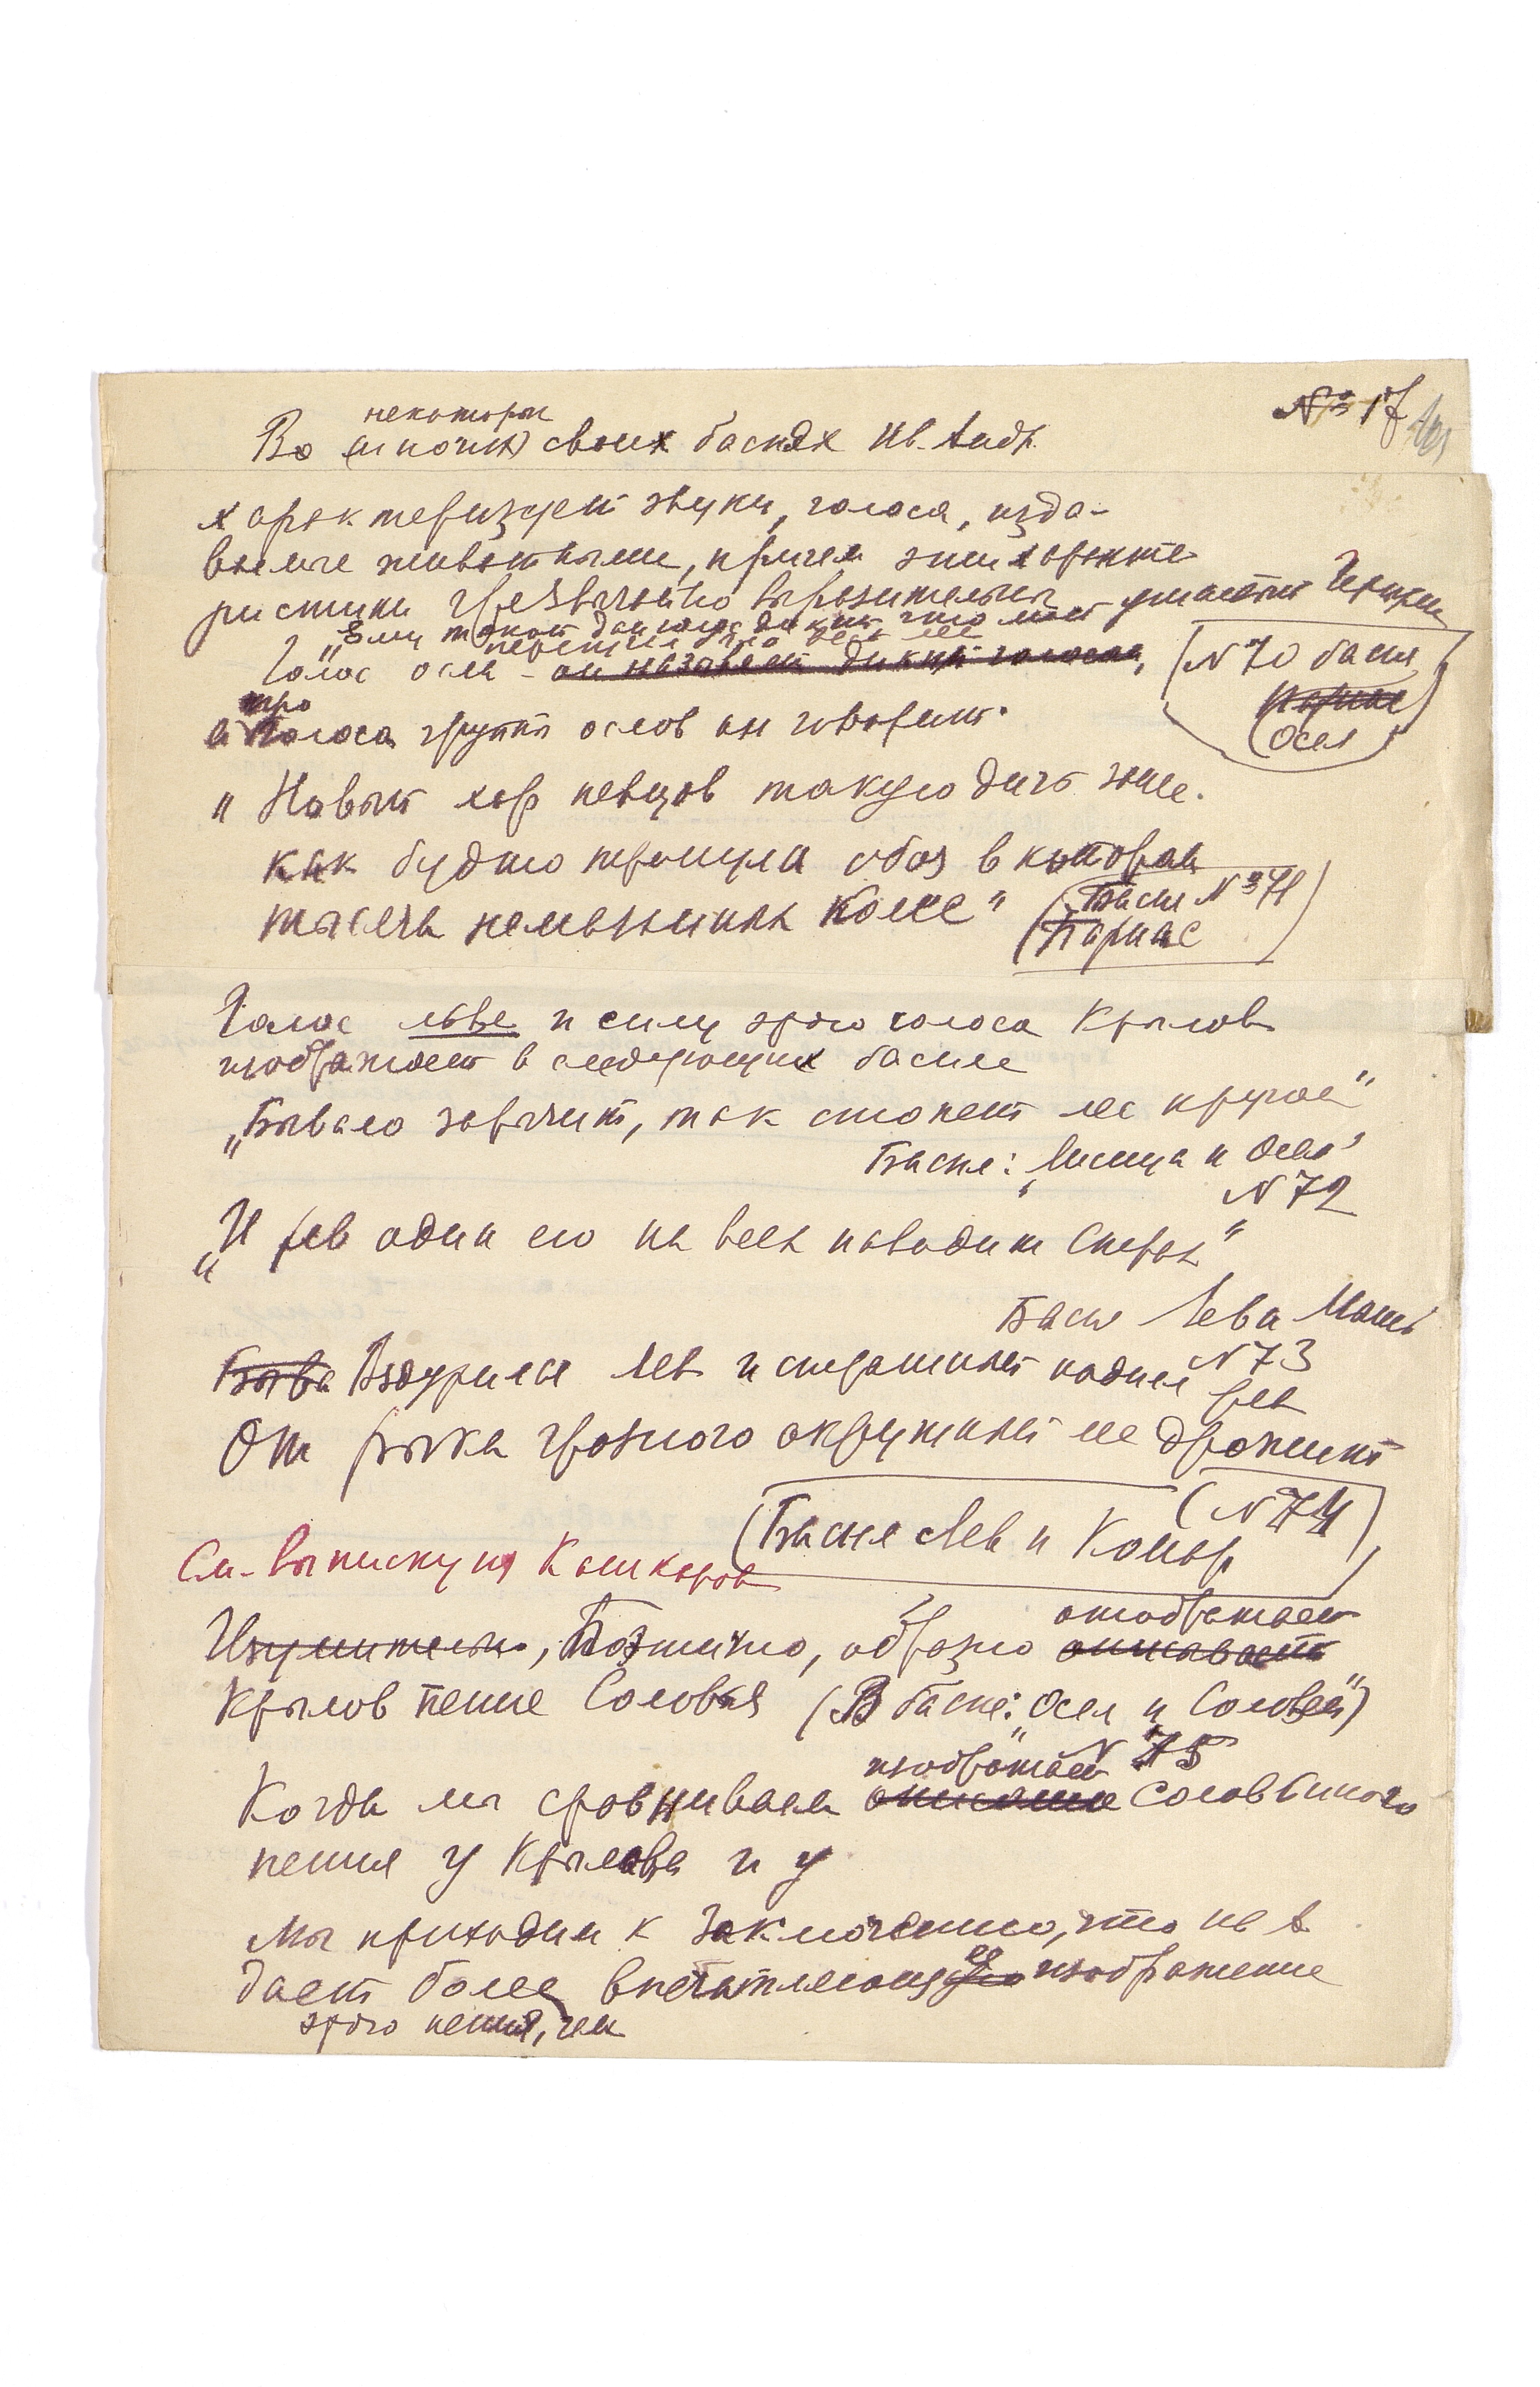 № 17
некоторы
Во (многих) своих баснях Ив. Андр.
характеризует звуки, голоса, изда-
ваемые животными, причем эти характе-
ристики чрезвычайно выразительны
Голос осла - он называет диким голосом,
(N 70 басня
Парнас
Осел)
про
а голоса групп ослов он говорит:
„Новый хор певцов такую дичь занес.
как будто тронулся обоз в котором
тысяча немазанных колес" (Басня № 71
Парнас)
Голос льва и силу этого голоса Крылов
изображает в следующих басне
„Бывало зарычит, так стонет лес кругом"
Басня: „Лисица и Осел"
N 72
„И рев один его на всех наводит страх"
Басня Лев и Мышь
N 73
Быва Вздурился Лев и страшный поднял рев
От рыка грозного окружный лес дрожит
(N 74)
(Басня Лев и Комар
См. выписку из Кашкаров
отображает
Изумительно, Поэтично, образно описывает
Крылов пение Соловья (В басне: „Осел и Соловей")
N 75
изображен
Когда мы сравниваем описание Соловьиного
пения у Крылова и у
Мы приходим к заключению, что ив
дает более впечатляющее изображение
этого пения, чем